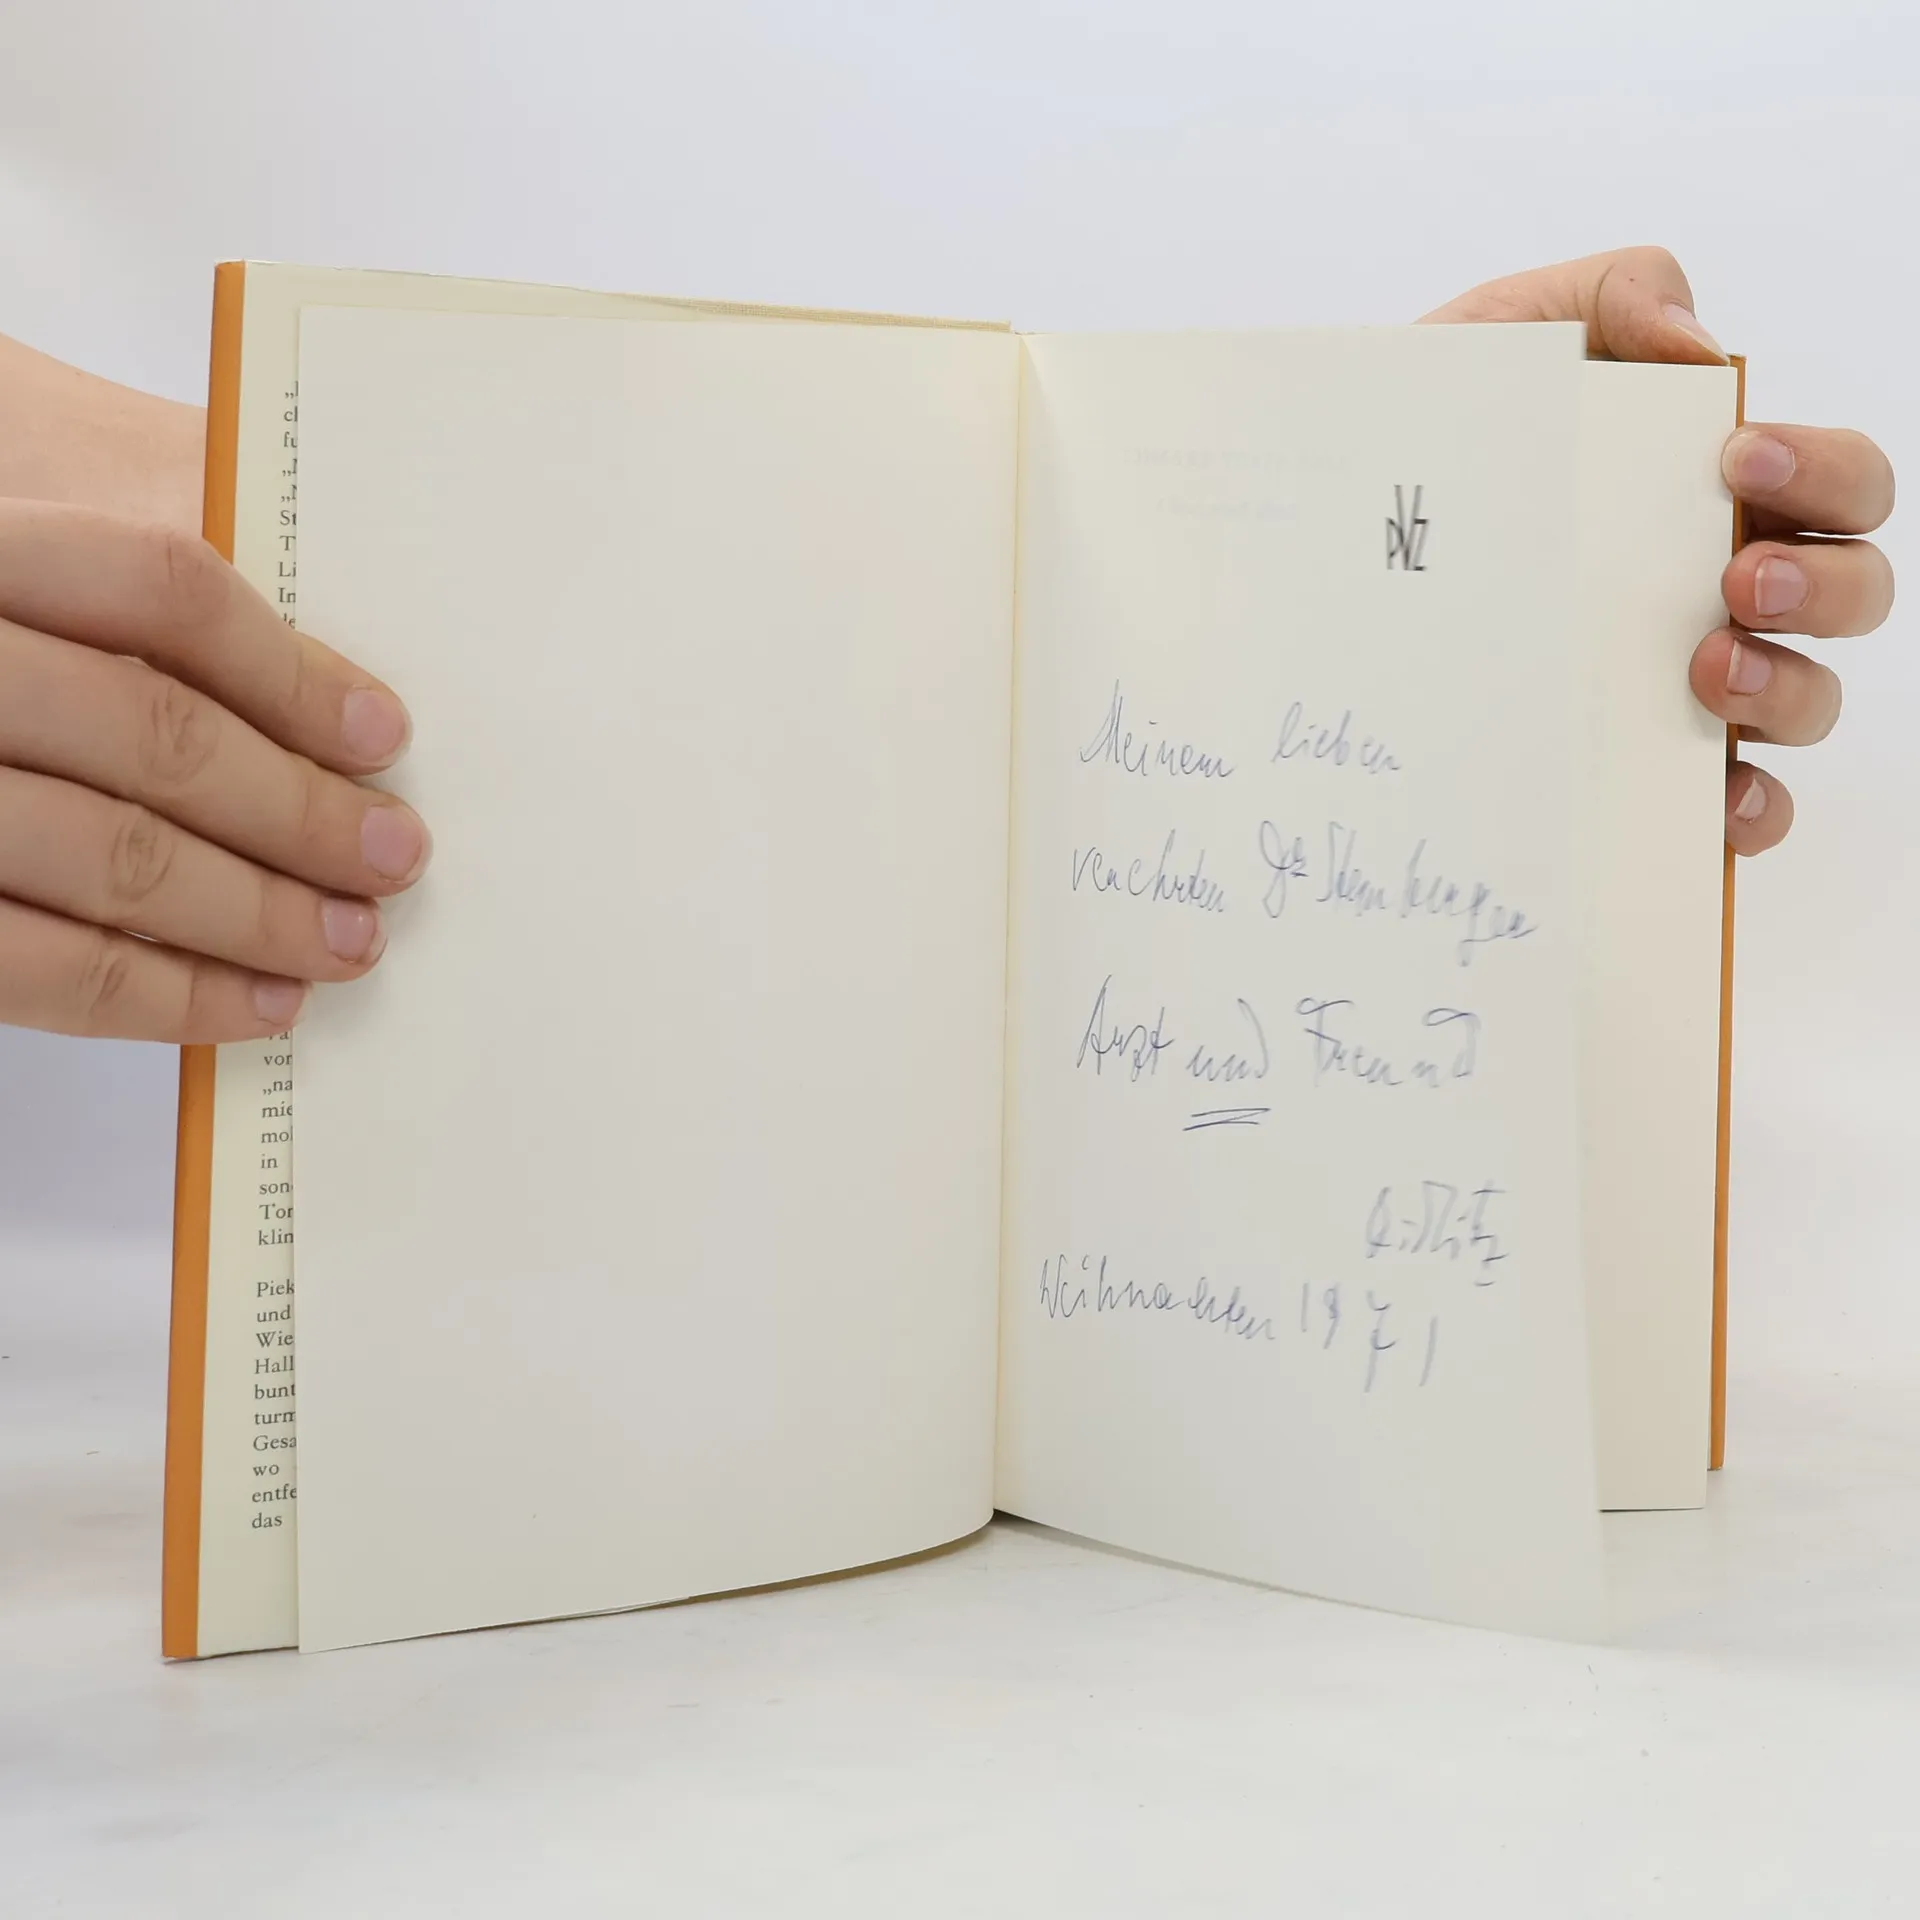 „
ch
fu
„
„
St
T
Li
In
vor
„na
mie
mo
in
son
Tor
klin
Piek
und
Wie
Hall
bunt
turm
Gesa
wo
entfe
das
PVZ
Meinem lieben
verehrten Dr Sternberger
Arzt und Freund
Weihnachten 1971